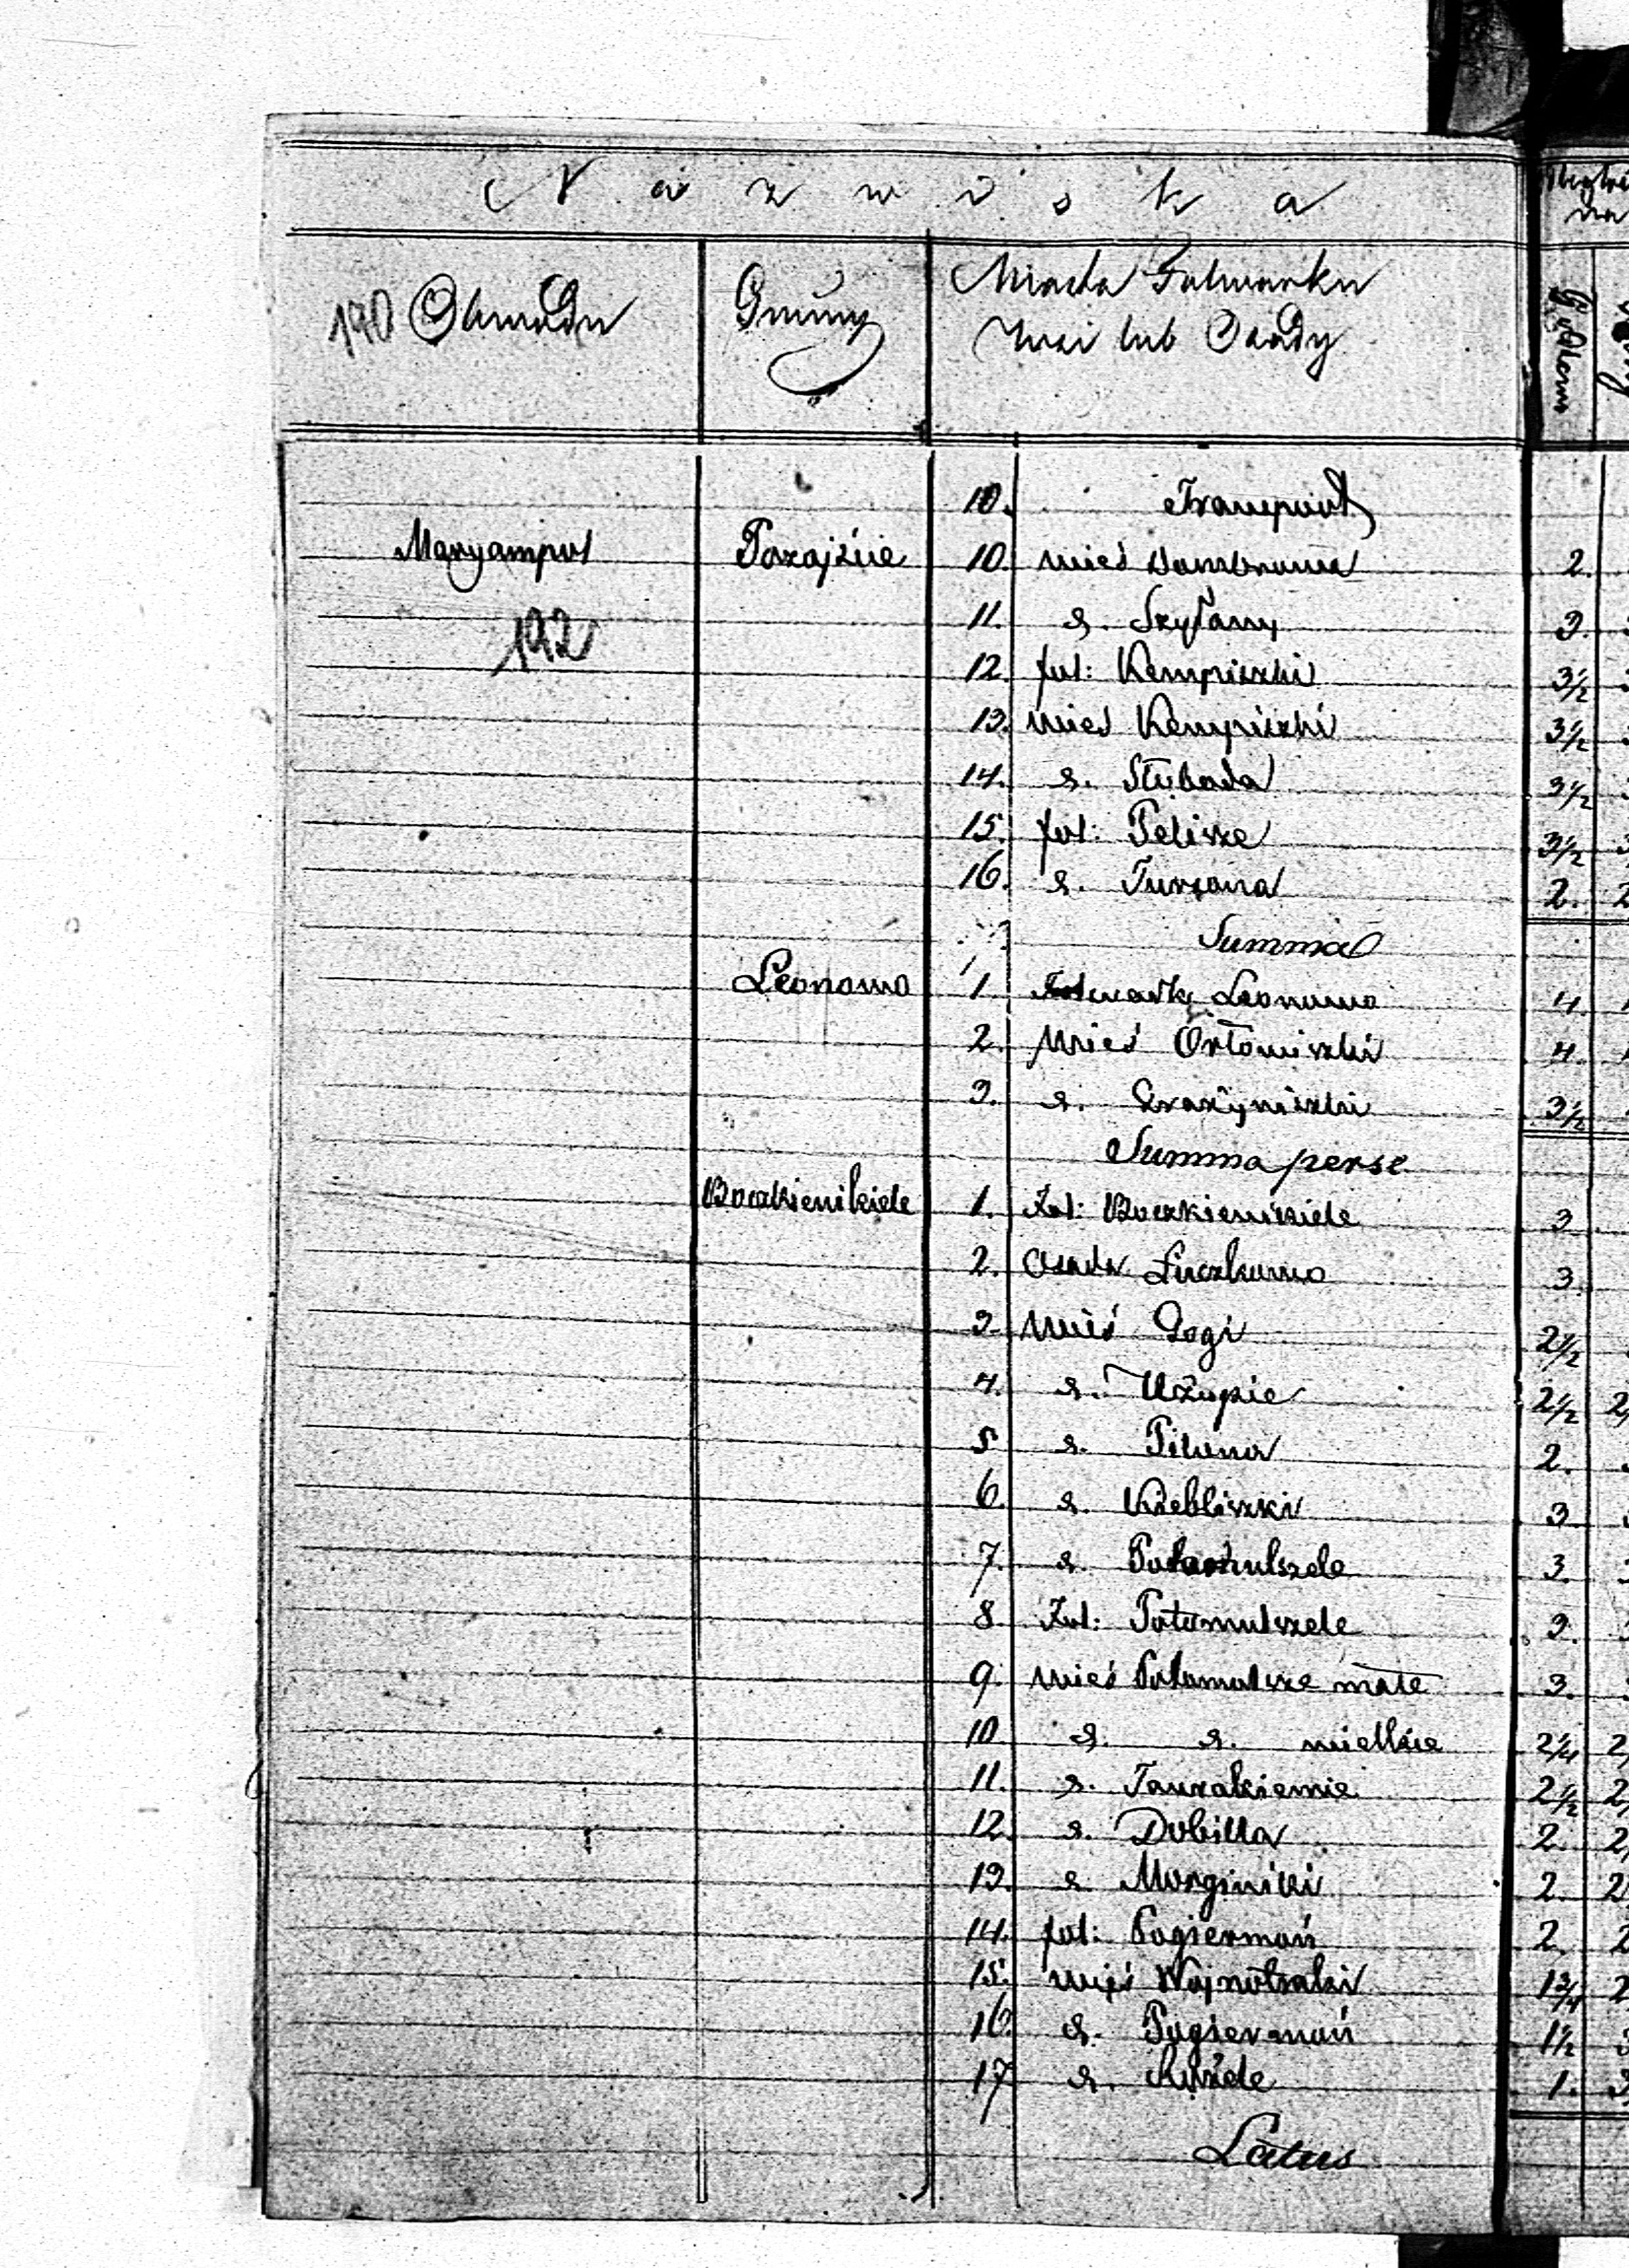 Nazwiska
190 Obwodu Gminy Miasta Folwarku
Wsi lub Osady
Odległość
na
G. Kłem
10. Transport
Maryampol Pozajście 10. wieś Dombrowa 2.
192 11. s. Szyłany 3.
12. fol: Kempiszki 3½
13. wieś Kempiszki 3½
14. s. Słoboda 3½
15. fol: Pelisze 3½
16. s. Turżana 2. 2
Summa
Leonowo 1. Folwark Leonowo 4.
2. Wieś Ortowiszki 4.
3. s. Grażyniszki 3½
Summa perse
Boczkienikiele 1. Fol: Boczkienikiele 3
2. Osada Łuczkowo 3.
3. Wieś Gogi 2½
4. s. Użupie 2½ 2
5 s. Pilona 2.
6. s. Kiebliszki 3
7. s. 3.
8. Fol: Potamulszele 3.
9. wieś Potamulsze małe 3.
10 s. s. wielkie 2¼ 2
11. s. Taurakiemie 2½ 2
12. s. Dobilla 2. 2
13. s. Morginiki 2. 2
14. fol: Pogiermoń 2. 2
15. wieś Wojnotraki 1¾ 2
16. s. Pogiermoń 1½
17 s. 1.
Latus